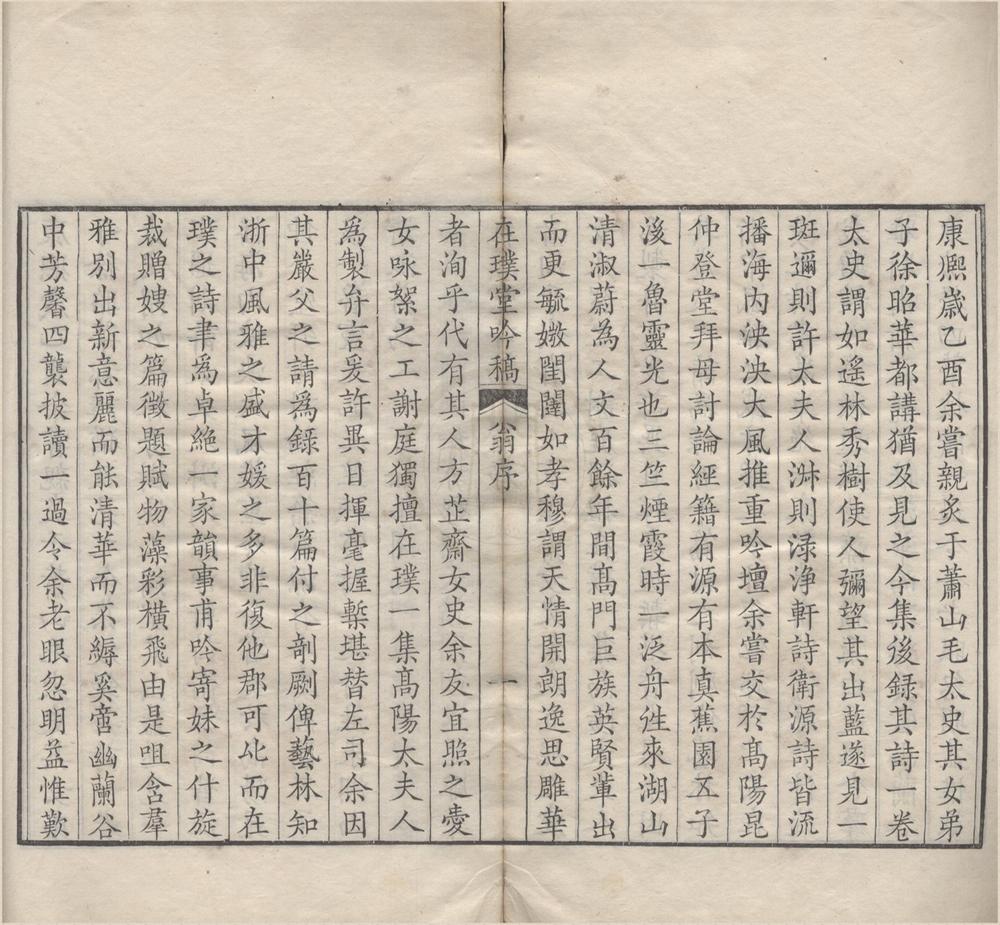 康熈歲乙酉余嘗親炙于蕭山毛太史其女弟
子徐昭華都講猶及見之今集後録其詩一卷
太史謂如遥林秀樹使人彌望其出藍遂見一
斑邇則許太夫人淋則渌浄軒詩衛源詩皆流
播海内泱泱大風推重吟壇余嘗交於髙陽昆
仲登堂拜母討論經籍有源有本真蕉園五子
後一魯靈光也三竺煙霞時一泛舟徃來湖山
清淑蔚為人文百餘年間髙門巨族英賢輩出
而更毓媺閨闥如孝穆謂天情開朗逸思雕華
在璞堂吟稿 翁序 一
者洵乎代有其人方芷齋女史余友宜照之愛
女咏絮之工謝庭獨擅在璞一集髙陽太夫人
為製弁言爰許異日揮毫握槧堪替左司余因
其嚴父之請為録百十篇付之剞劂俾藝林知
浙中風雅之盛才媛之多非復他郡可比而在
璞之詩聿為卓絶一家韻事甫吟寄妹之什旋
裁贈嫂之篇徴題賦物藻彩横飛由是咀含羣
雅別出新意麗而能清華而不縟奚啻幽蘭谷
中芳馨四襲披讀一過令余老眼忽明益惟歎